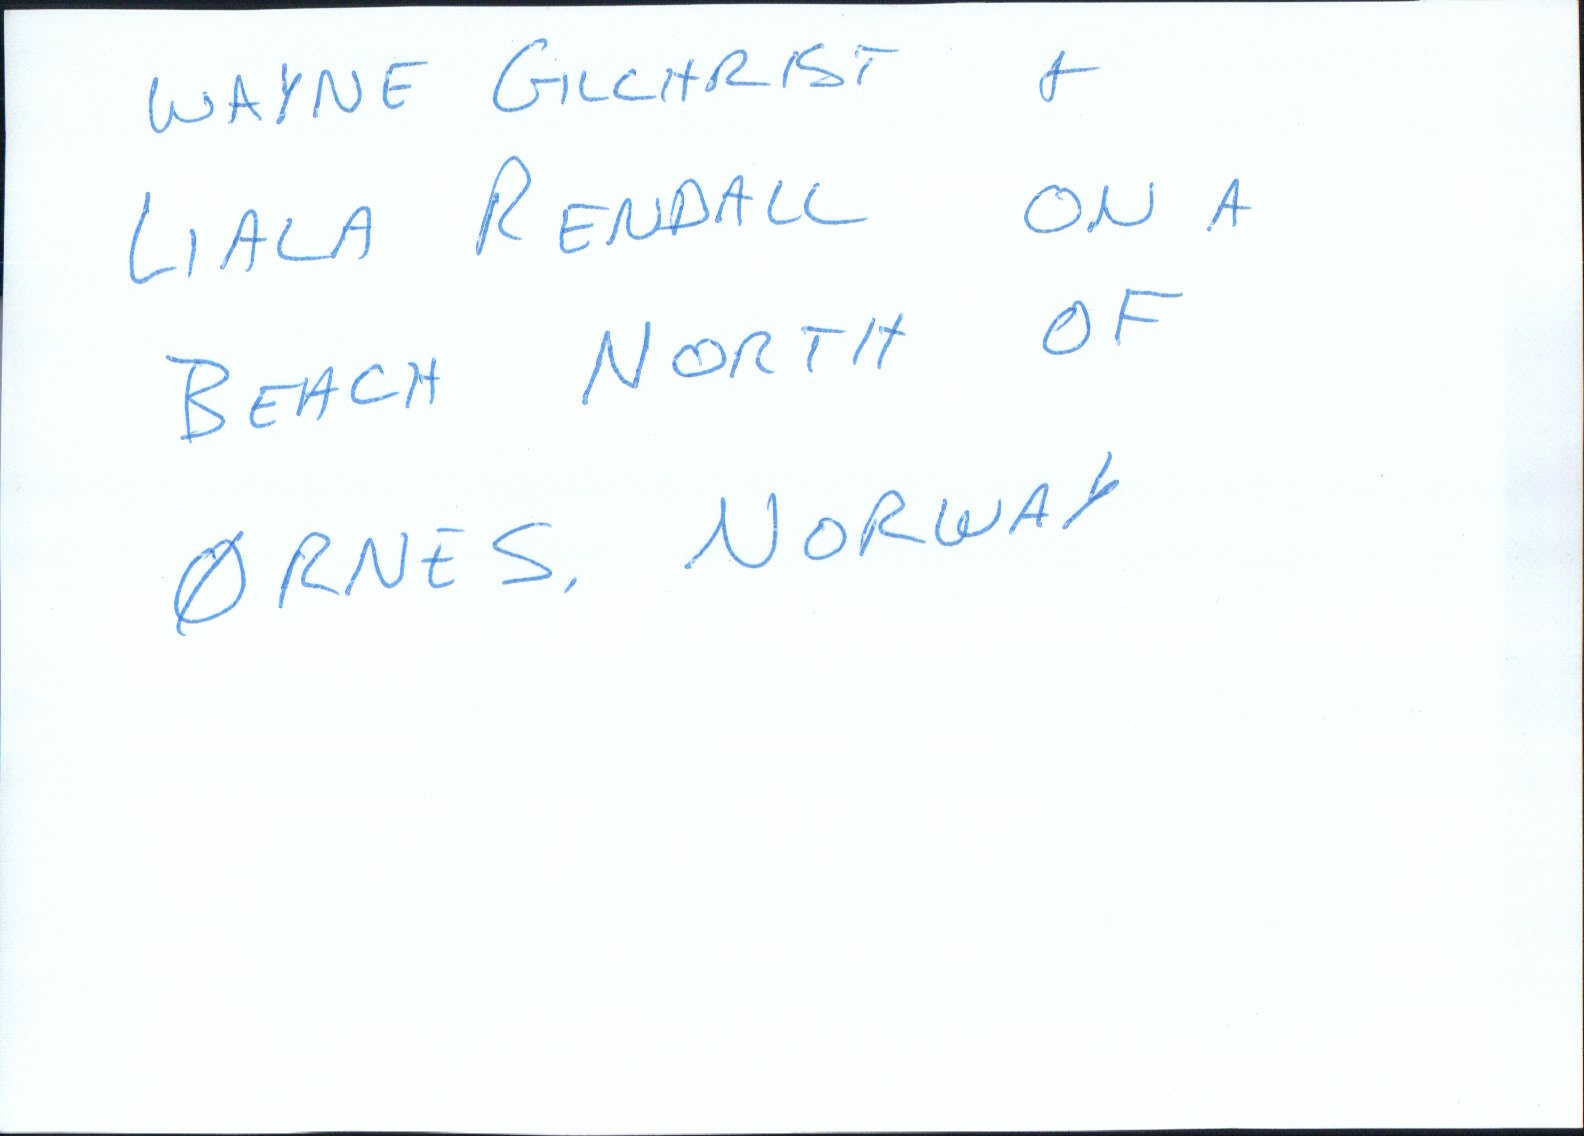 WAYNE GILCHRIST &
LIALA RENDALL ON A
BEACH NORTH OF
ØRNES, NORWAY